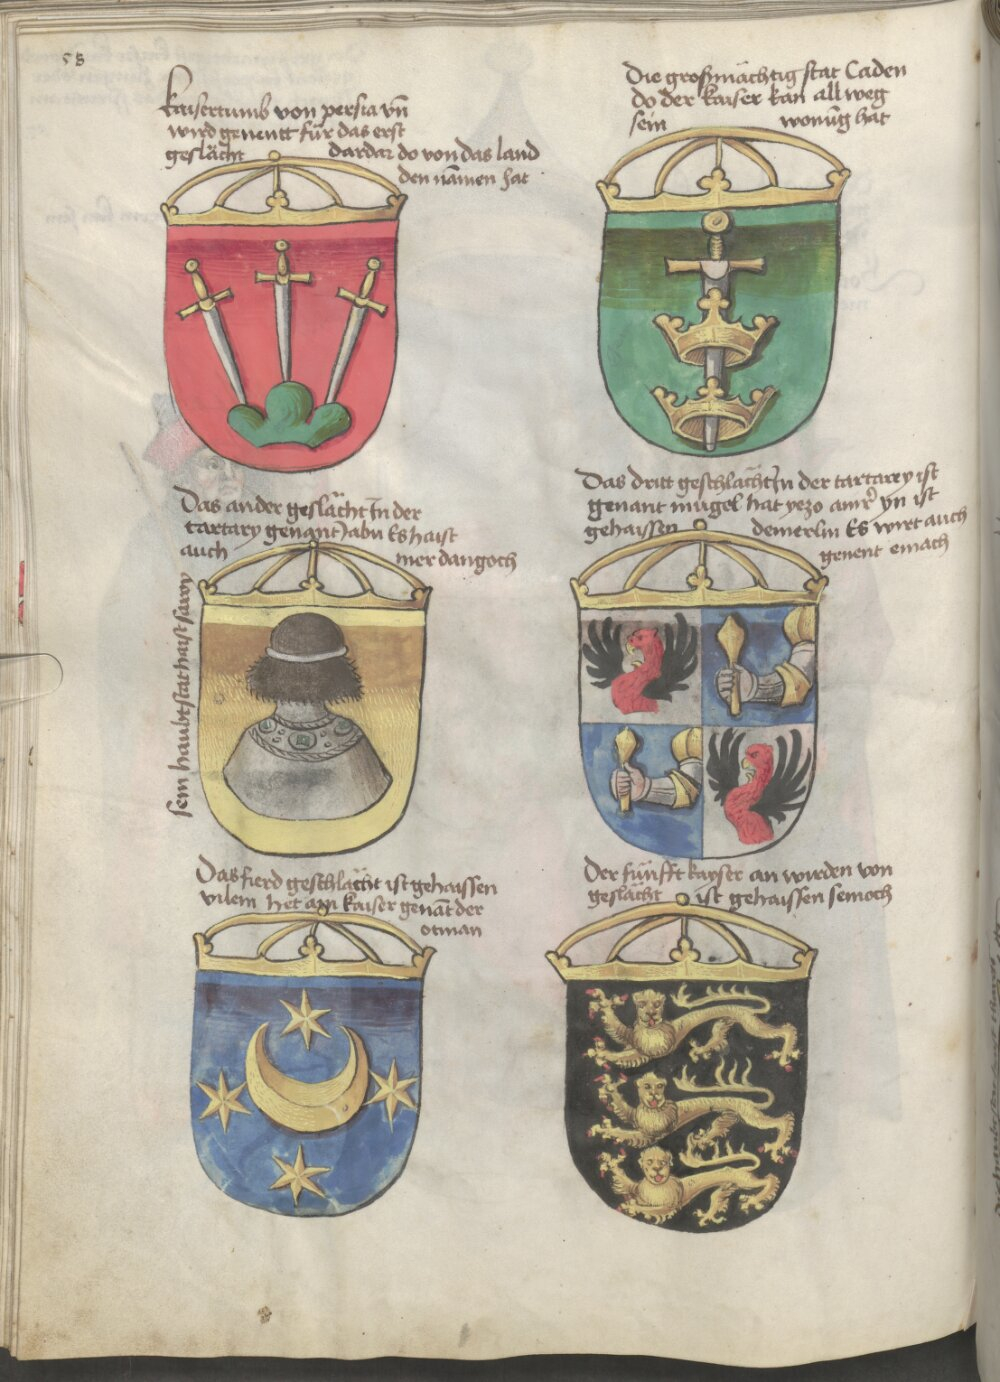 58
kaisertumb von persia vn̄
wird genentt für das erst
geslächt dardar do von das land
den namen hat
Die großmächtig stat Caden
do der kaiser kan allweg
sein wonūg hat
Das ander geslächt In der
tartary genant Jabu Es haist
auch mer dangoch
sein haubtstat haist
Das dritt geschlächt In der tartarey ist
genant mugel hat yezo yn ist
gehaissen demerlin Es wirt auch
genent emach
Das fierd geschlächt ist gehaissen
vilem het ain kaiser genāt der
otman
Der fünfft kayser an wirden von
geslächt ist gehaissen semoch